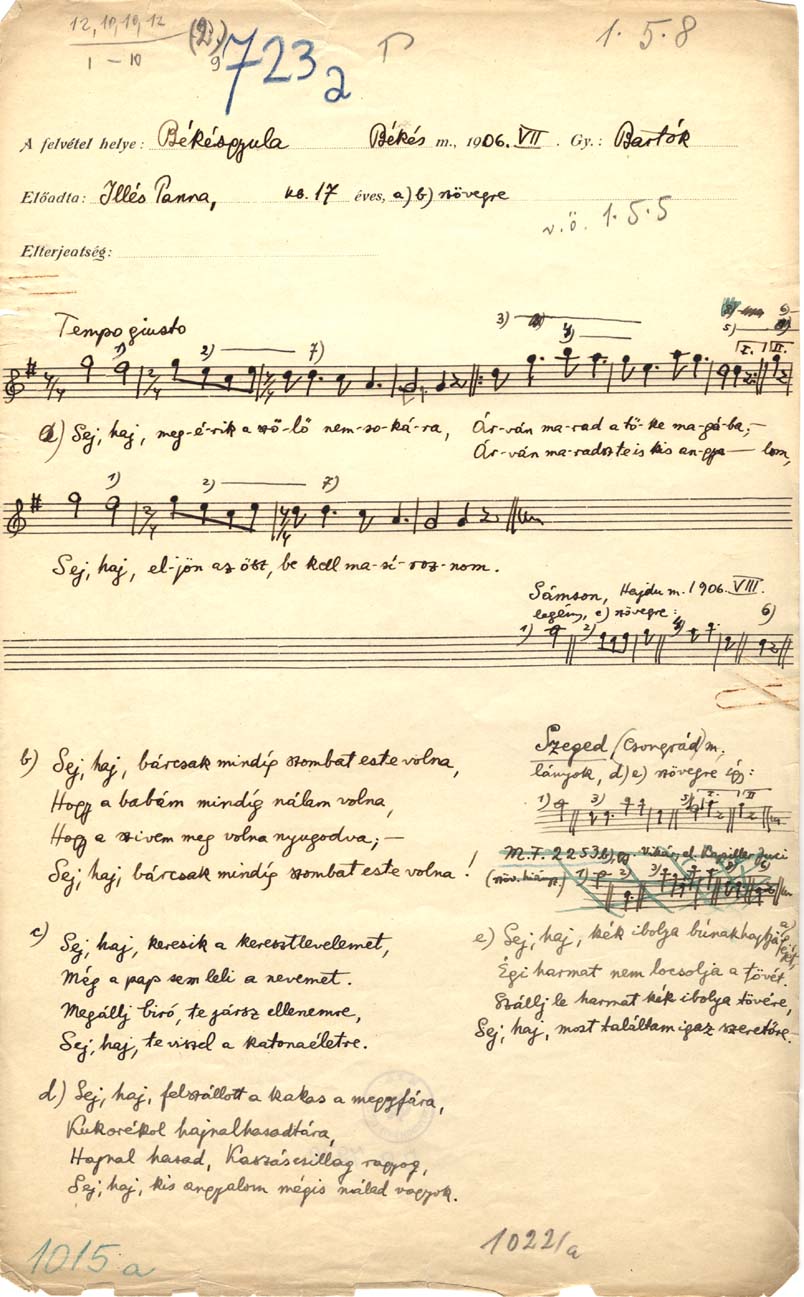 12, 10, 10, 12
1 - 10
(2)
9
723
a
Γ
1. 5. 8
A felvétel helye: Békésgyula Békés m., 1906. VII. Gy.: Bartók
Előadta: Illés Panna, kb. 17 éves, a) b) szövegre
v.ö. 1. 5. 5
Elterjeatség:
Tempo giusto
1) 2) 7) 3) 5) I. II.
a) Sej, haj, meg-é-rik a sző-lő nem-so-ká-ra, Ár-ván ma-rad a tő-ke ma-gá-ba; –
Ár-ván ma-radsz te is kis an-gya — lom,
1) 2) 7)
Sej, haj, el-jön az ősz, be kell ma-sí-roz-nom.
Sámson, Hajdu m. 1906. VIII.
legény, c) szövegre:
1) 2) 6)
b) Sej, haj, bárcsak mindíg szombat este volna,
Hogy a babám mindíg nálam volna,
Hogy a szivem meg volna nyugodva; –
Sej, haj, bárcsak mindíg szombat este volna!
Szeged (Csongrád) m.
lányok, d) e) szövegre így:
1) 3) 5) I II
M.F. 2253 b) Vikár, el.
(szöv. hiányz.) 1) 2) 3)
c) Sej, haj, keresik a keresztlevelemet,
Még a pap sem leli a nevemet.
Megállj biró, te jársz ellenemre,
Sej, haj, te viszel a katonaéletre.
e) Sej, haj, kék ibolya búnak hajtja
Égi harmat nem locsolja a tövét.
Szállj le harmat kék ibolya tövére,
Sej, haj, most találtam igaz szeretőre.
d) Sej, haj, felszállott a kakas a meggyfára,
Kukorékol hajnalhasadtára,
Hajnal hasad, Kaszáscsillag ragyog,
Sej, haj, kis angyalom mégis nálad vagyok.
1015 a
1022/a